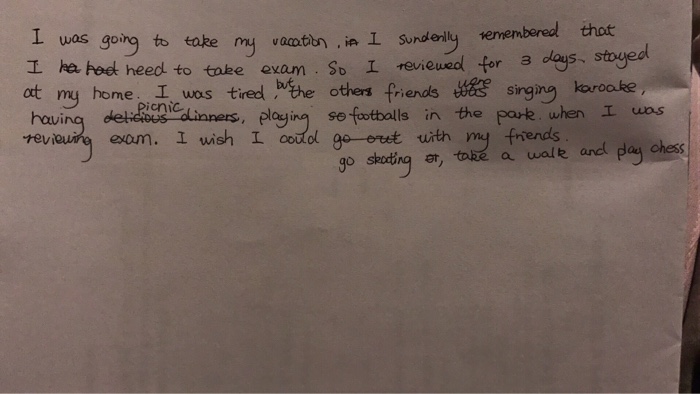 I was going to take my vacation, in I sundenlly remembered that
I ha had need to take exam. So I reviewed for 3 days, stayed
at my home. I was tired, but the others friends was were singing karoake,
having delicious dinners picnic, playing so footballs in the park when I was
reviewing exam. I wish I could go out with my friends.
go skating or, take a walk and play chess